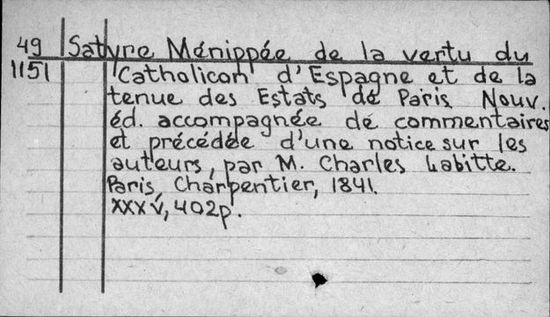 49 Satyre Ménippée de la vertu du
1151 "Catholicon" d'Espagne et de la
tenue des Estats de Paris. Nouv.
éd. accompagnée de commentaires
et précédée d'une notice sur les
auteurs, par M. Charles Labitte.
Paris, Charpentier, 1841.
XXXV, 402p.